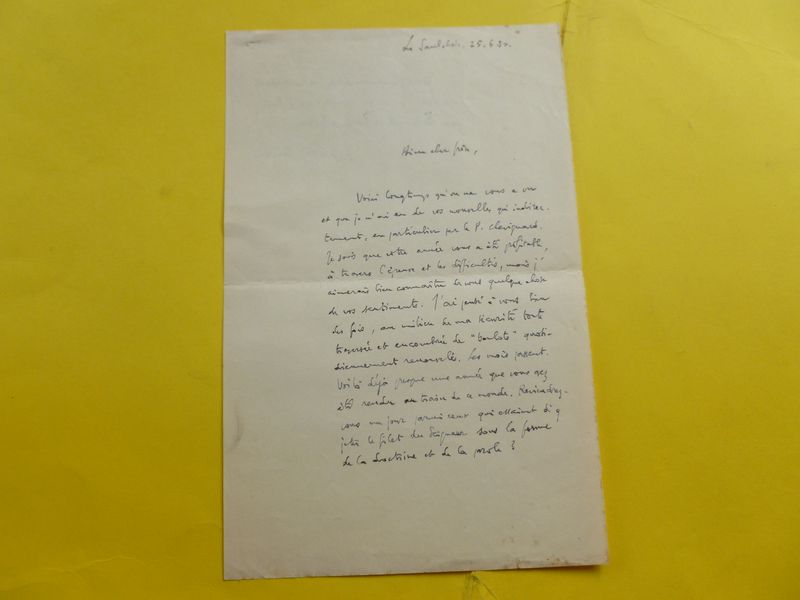 Le Saulchoir, 25.6.3
Bien cher frère,
Voici longtemps qu'on ne vous a vu
et que je n'ai eu de vos nouvelles qu'indirec-
tement, en particulier par le P.
Je sais que cette année vous a été profitable,
à travers l'épreuve et les difficultés, mais j'
aimerais bien connaître de vous quelque chose
de vos sentiments. J'ai pensé à vous bien
des fois, au milieu de ma sécurité toute
traversée et encombrée de "boulots" quoti-
diennement renouvelés. Les mois passent.
Voilà déjà presque une année que vous avez
été rendu au train de ce monde. Reviendrez-
vous un jour parmi ceux qui essaient d'y
jeter le filet du Seigneur sous la forme
de la doctrine et de la parole ?